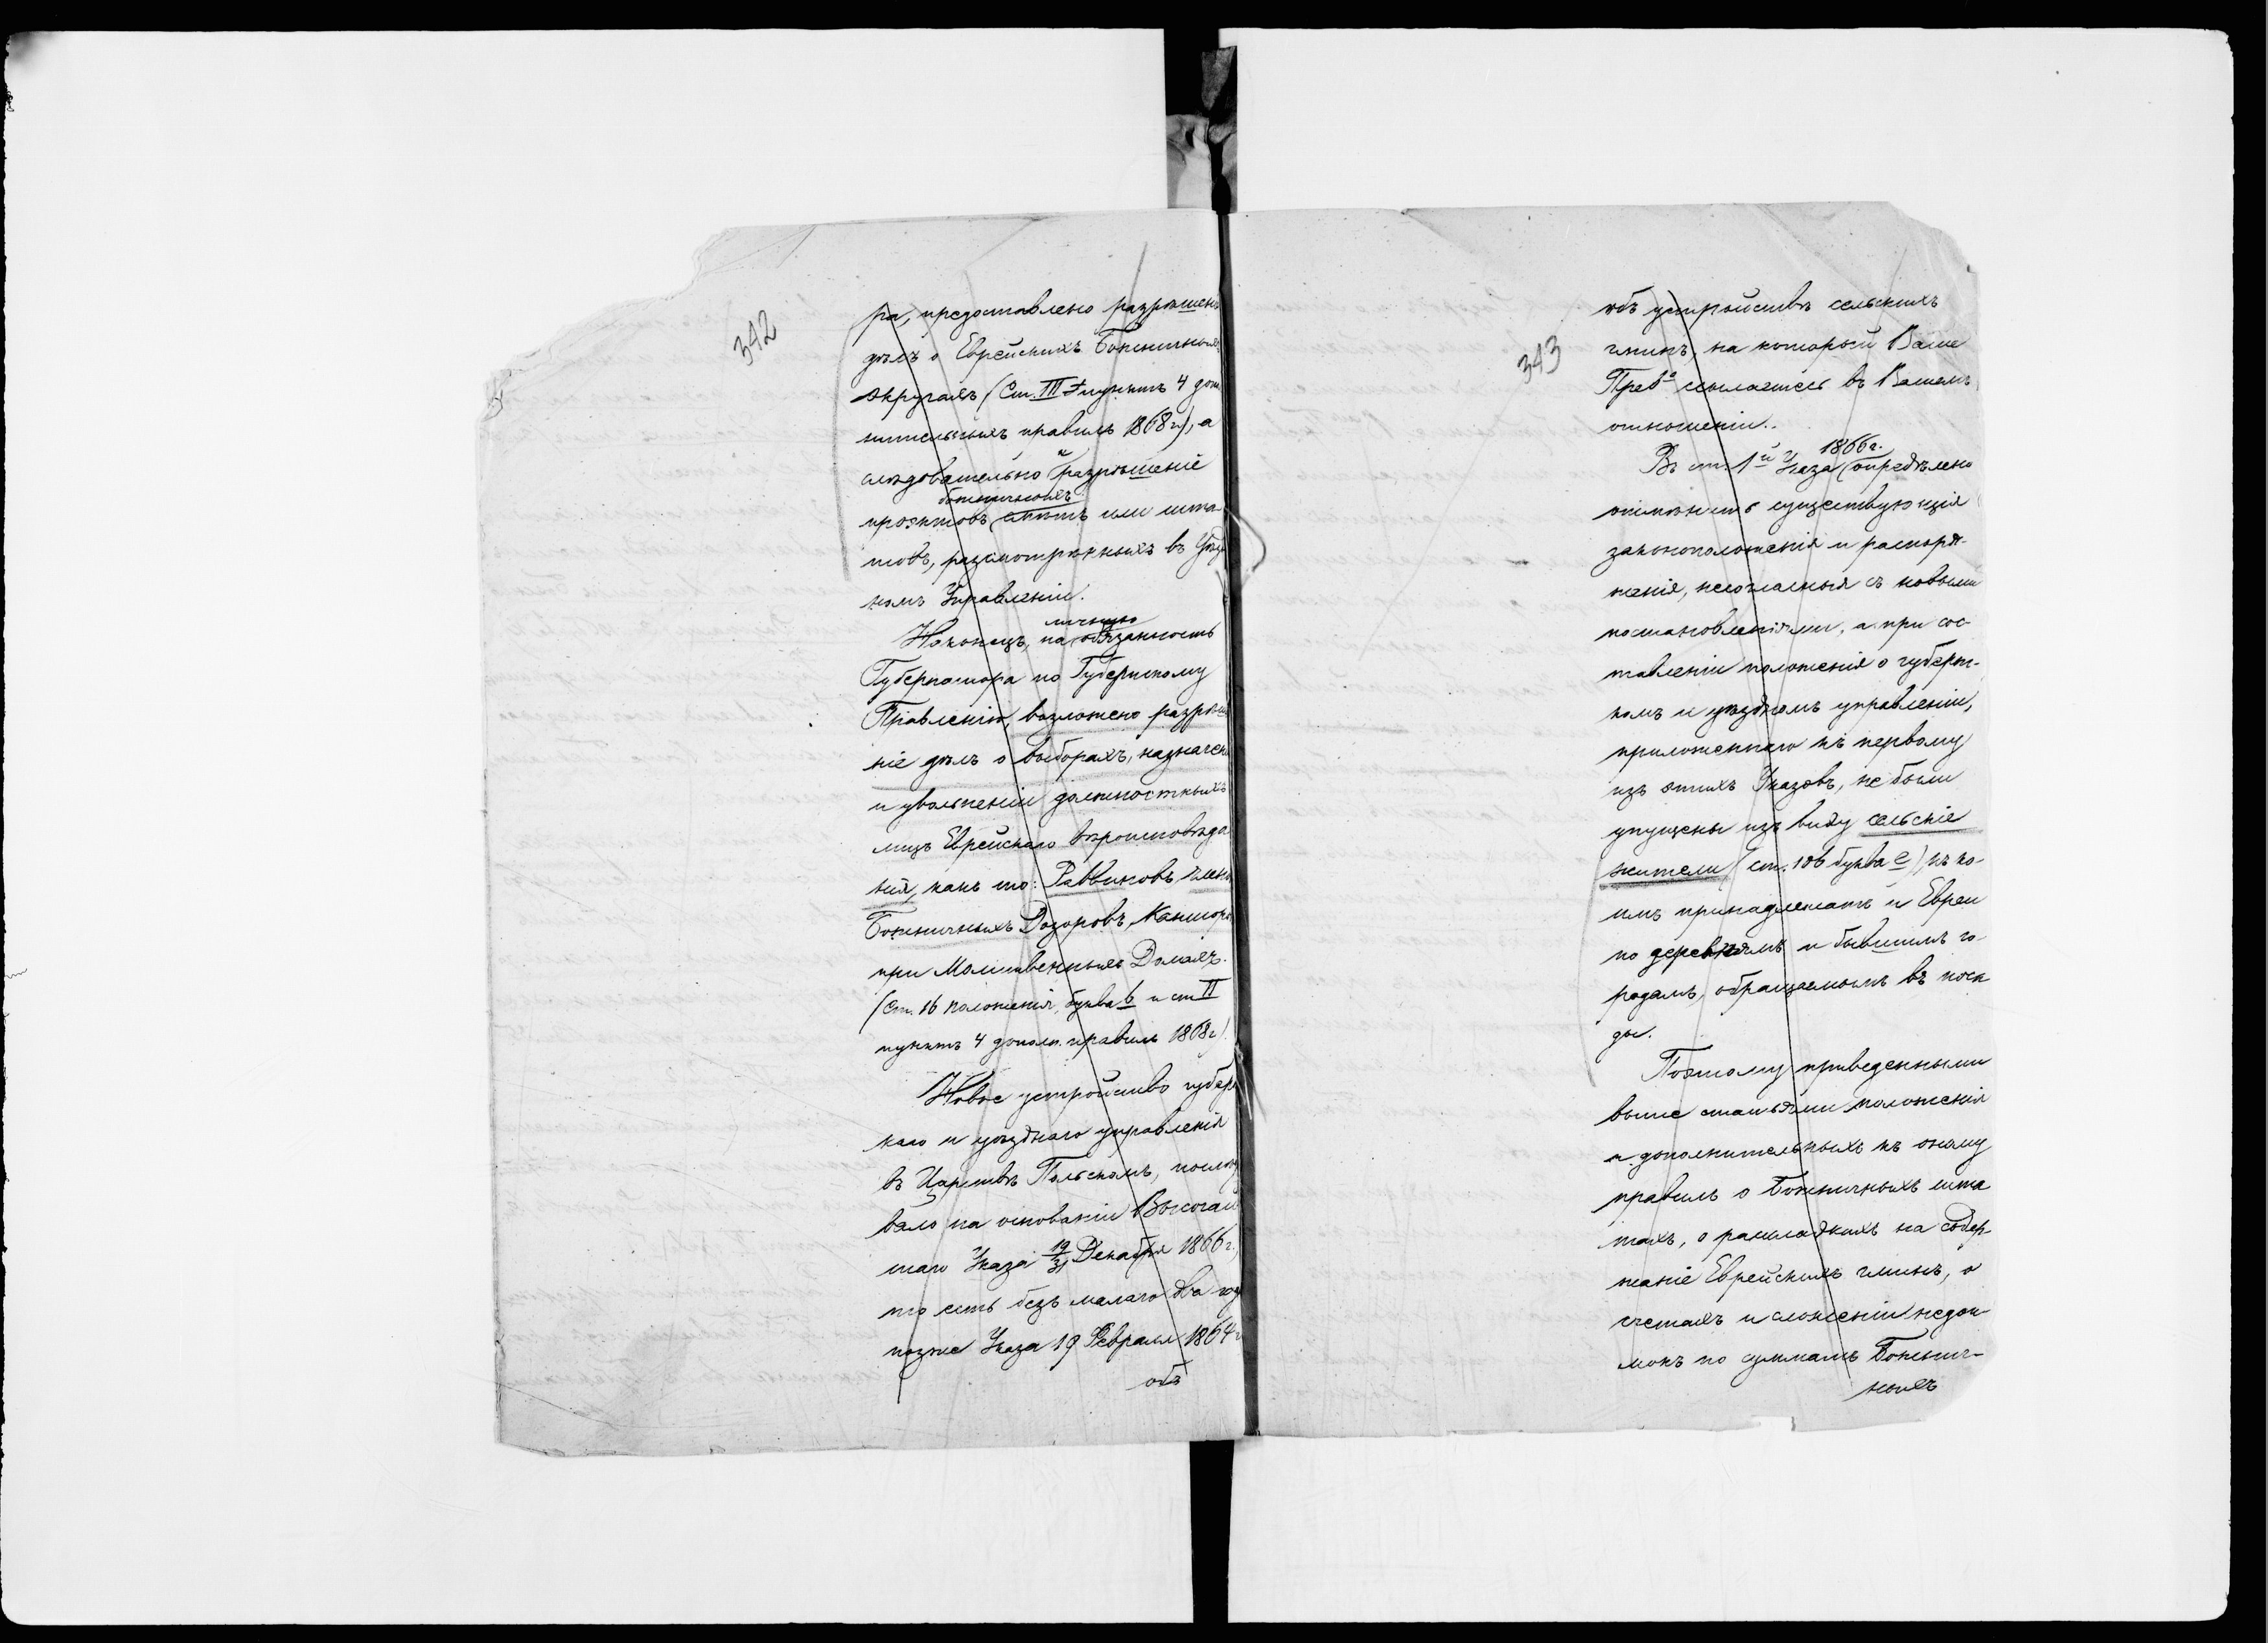 342
ра, предоставлено разрѣшен
дѣлъ о Еврейскихъ Божничныхъ
округахъ (Ст. III пунктъ 4 допол
нительныхъ правилъ 1868 г), а
слѣдовательно и разрѣшеніе
божничныхъ
проэктовъ или шта
товъ, разсмотрѣнныхъ въ Уѣзд
номъ Управленіи.
личную
Наконецъ, на обязанность
Губернатора по Губернскому
Правленію, возложено разрѣше
ніе дѣлъ о выборахъ, назначен
и увольненіи должностныхъ
лицъ Еврейскаго вѣроисповѣда
нія, какъ то: Раввиновъ, член
Божничныхъ Дозоровъ, Канторъ
при Молитвенныхъ Домахъ.
(Ст. 16 положенія, буква в и ст II
пунктъ 4 дополн. правилъ 1868 г)
Новое устройство губерн
скаго и уѣзднаго управленія
въ Царствѣ Польскомъ, послѣдо
вало на основаніи Высочай
шаго Указа 19/31 Декабря 1866 г.,
то есть безъ малаго два год
позже Указа 19 Февраля 1864 г
объ
343
объ устройствѣ сельскихъ
гминъ, на который Ваше
Прев-о ссылаетесь въ Вашемъ
отношеніи.
1866 г.
Въ ст. 1й Указа опредѣлено
отмѣнить существующія
законоположенія и распоря-
женія, несогласныя съ новыми
постановленіями, а при сос-
тавленіи положенія о губерн-
комъ и уѣздномъ управленіи,
приложеннаго къ первому
изъ этихъ Указовъ, не были
упущены изъ виду сельскіе
жители (ст. 106 буква е), къ ко-
имъ принадлежатъ и Евреи
по деревнямъ и бывшимъ го-
родамъ, обращаемымъ въ поса
ды.
Поэтому приведенными
выше статьями положенія
и дополнительныхъ къ оному
правилъ о Божничныхъ шта
тахъ, о раскладкахъ на содер
жаніе Еврейскихъ гминъ, о
счетахъ и сложеніи недои-
мокъ по суммамъ Божнич-
ныхъ